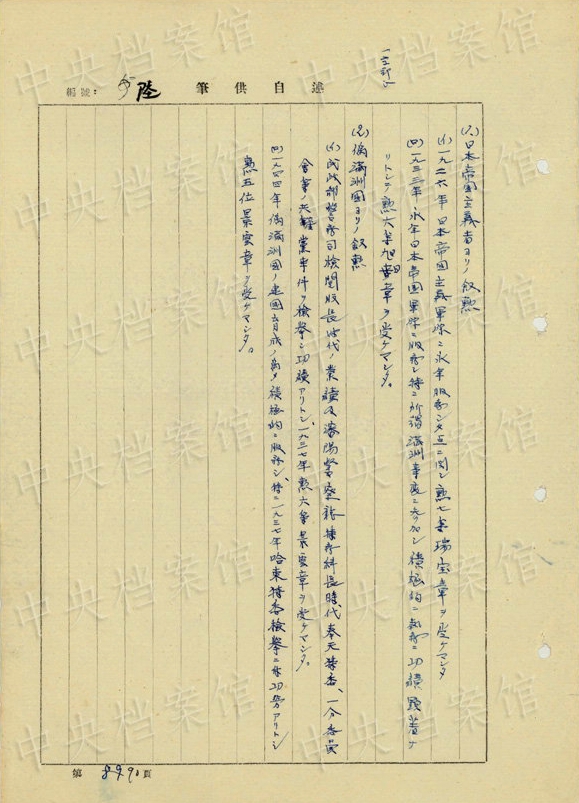 述自供筆
編號:
陸
(1) 日本帝国主義者ヨリノ叙勲
(イ) 一九二六年日本帝国主義軍隊ニ永年服務シタ点ニ関シ勲七等瑞宝章ヲ受ケマシタ
(ロ) 一九三三年永年日本帝国軍隊ニ服務シ特ニ所謂満洲事変ニ参加シ積極的ニ服務シ功績顕著ナ
リトシテ勲六等旭日章ヲ受ケマシタ。
(2) 偽満洲国ヨリノ叙勲
(イ) 民政部警務司検閲股長時代ノ業績及瀋陽警察庁特務科長時代、奉天特委、一分委員
会等ノ共産党事件ヲ検挙シ功績アリトシ、一九三七年勲六等景雲章ヲ受ケマシタ。
(ロ) 一九四四年偽満洲国ノ建国育成ノ為メ積極的ニ服務シ、特ニ一九三七年哈東特委検挙ニ功労アリトシ
勲五位景雲章ヲ受ケマシタ。
第 頁
中央档案馆